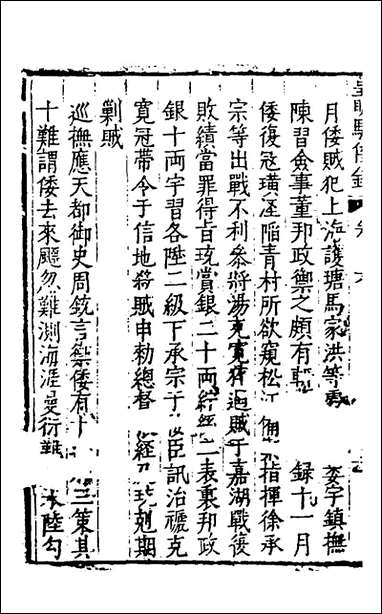 皇明馭倭錄 卷六
月倭賊犯上海護塘馬家洪等 婁宇鎮撫
陳習僉事董邦政禦之頗有 錄十一月
倭復冦璜涇陷青村所欲窺松江 備 指揮徐承
宗等出戰不利參將湯克寬 追賊于嘉湖戰後
敗績當罪得旨珫賞銀二十兩 二表裏邦政
銀十兩宇習各陞二級下承宗于 臣訊治褫克
寬冠帶令于信地殺賊申勅總督 經 珫剋期
剿賊
巡撫應天都御史周珫言禦倭有十 三策其
十難謂倭去來飈忽難測海涯曼衍難 水陸勾